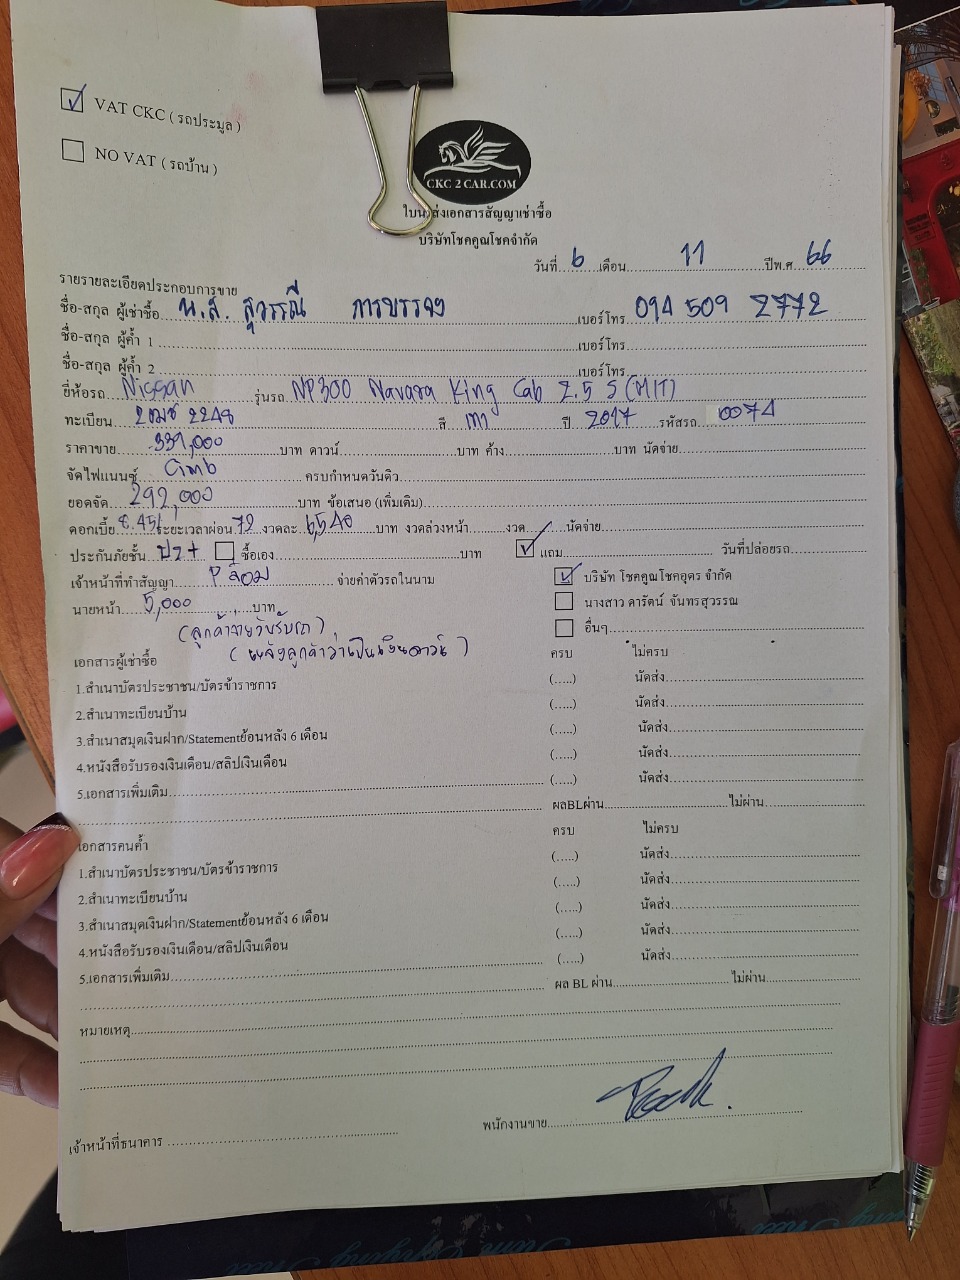 VAT CKC ( รถประมูล )
NO VAT ( รถบ้าน )
CKC 2 CAR.COM
ใบนำส่งเอกสารสัญญาเช่าซื้อ
บริษัทโชคคูณโชคจำกัด
วันที่ 6 เดือน 11 ปีพ.ศ 66
รายรายละเอียดประกอบการขาย
ชื่อ-สกุล ผู้เช่าซื้อ น.ส. สุวรรณี การบรรจง เบอร์โทร 094 509 2772
ชื่อ-สกุล ผู้ค้ำ 1 เบอร์โทร
ชื่อ-สกุล ผู้ค้ำ 2 เบอร์โทร
ยี่ห้อรถ Nissan รุ่นรถ NP300 Navara King Cab 2.5 S (MT)
ทะเบียน 2ฒฆ 2248 สี เทา ปี 2017 รหัสรถ 0074
ราคาขาย 339,000 บาท ดาวน์ บาท ค้าง บาท นัดจ่าย
จัดไฟแนนซ์ Cimb ครบกำหนดวันคิว
ยอดจัด 292,000 บาท ข้อเสนอ (เพิ่มเติม)
ดอกเบี้ย 8.45% ระยะเวลาผ่อน 72 งวดละ 6,540 บาท งวดล่วงหน้า งวด นัดจ่าย
ประกันภัยชั้น ป2+ ซื้อเอง บาท แถม วันที่ปล่อยรถ
เจ้าหน้าที่ทำสัญญา P'ล้อม จ่ายค่าตัวรถในนาม บริษัท โชคคูณโชคอุดร จำกัด
นายหน้า 5,000 บาท นางสาว ดารัตน์ จันทรสุวรรณ
(ลูกค้าจ่ายวันรับรถ) อื่นๆ
(แจ้งลูกค้าว่าเป็นเงินดาวน์)
เอกสารผู้เช่าซื้อ ครบ ไม่ครบ
1.สำเนาบัตรประชาชน/บัตรข้าราชการ (.....) นัดส่ง
2.สำเนาทะเบียนบ้าน (.....) นัดส่ง
3.สำเนาสมุดเงินฝาก/Statementย้อนหลัง 6 เดือน (.....) นัดส่ง
4.หนังสือรับรองเงินเดือน/สลิปเงินเดือน (.....) นัดส่ง
5.เอกสารเพิ่มเติม (.....) นัดส่ง
ผลBLผ่าน ไม่ผ่าน
เอกสารคนค้ำ ครบ ไม่ครบ
1.สำเนาบัตรประชาชน/บัตรข้าราชการ (.....) นัดส่ง
2.สำเนาทะเบียนบ้าน (.....) นัดส่ง
3.สำเนาสมุดเงินฝาก/Statementย้อนหลัง 6 เดือน (.....) นัดส่ง
4.หนังสือรับรองเงินเดือน/สลิปเงินเดือน (.....) นัดส่ง
5.เอกสารเพิ่มเติม (.....) นัดส่ง
ผล BL ผ่าน ไม่ผ่าน
หมายเหตุ
พนักงานขาย
เจ้าหน้าที่ธนาคาร